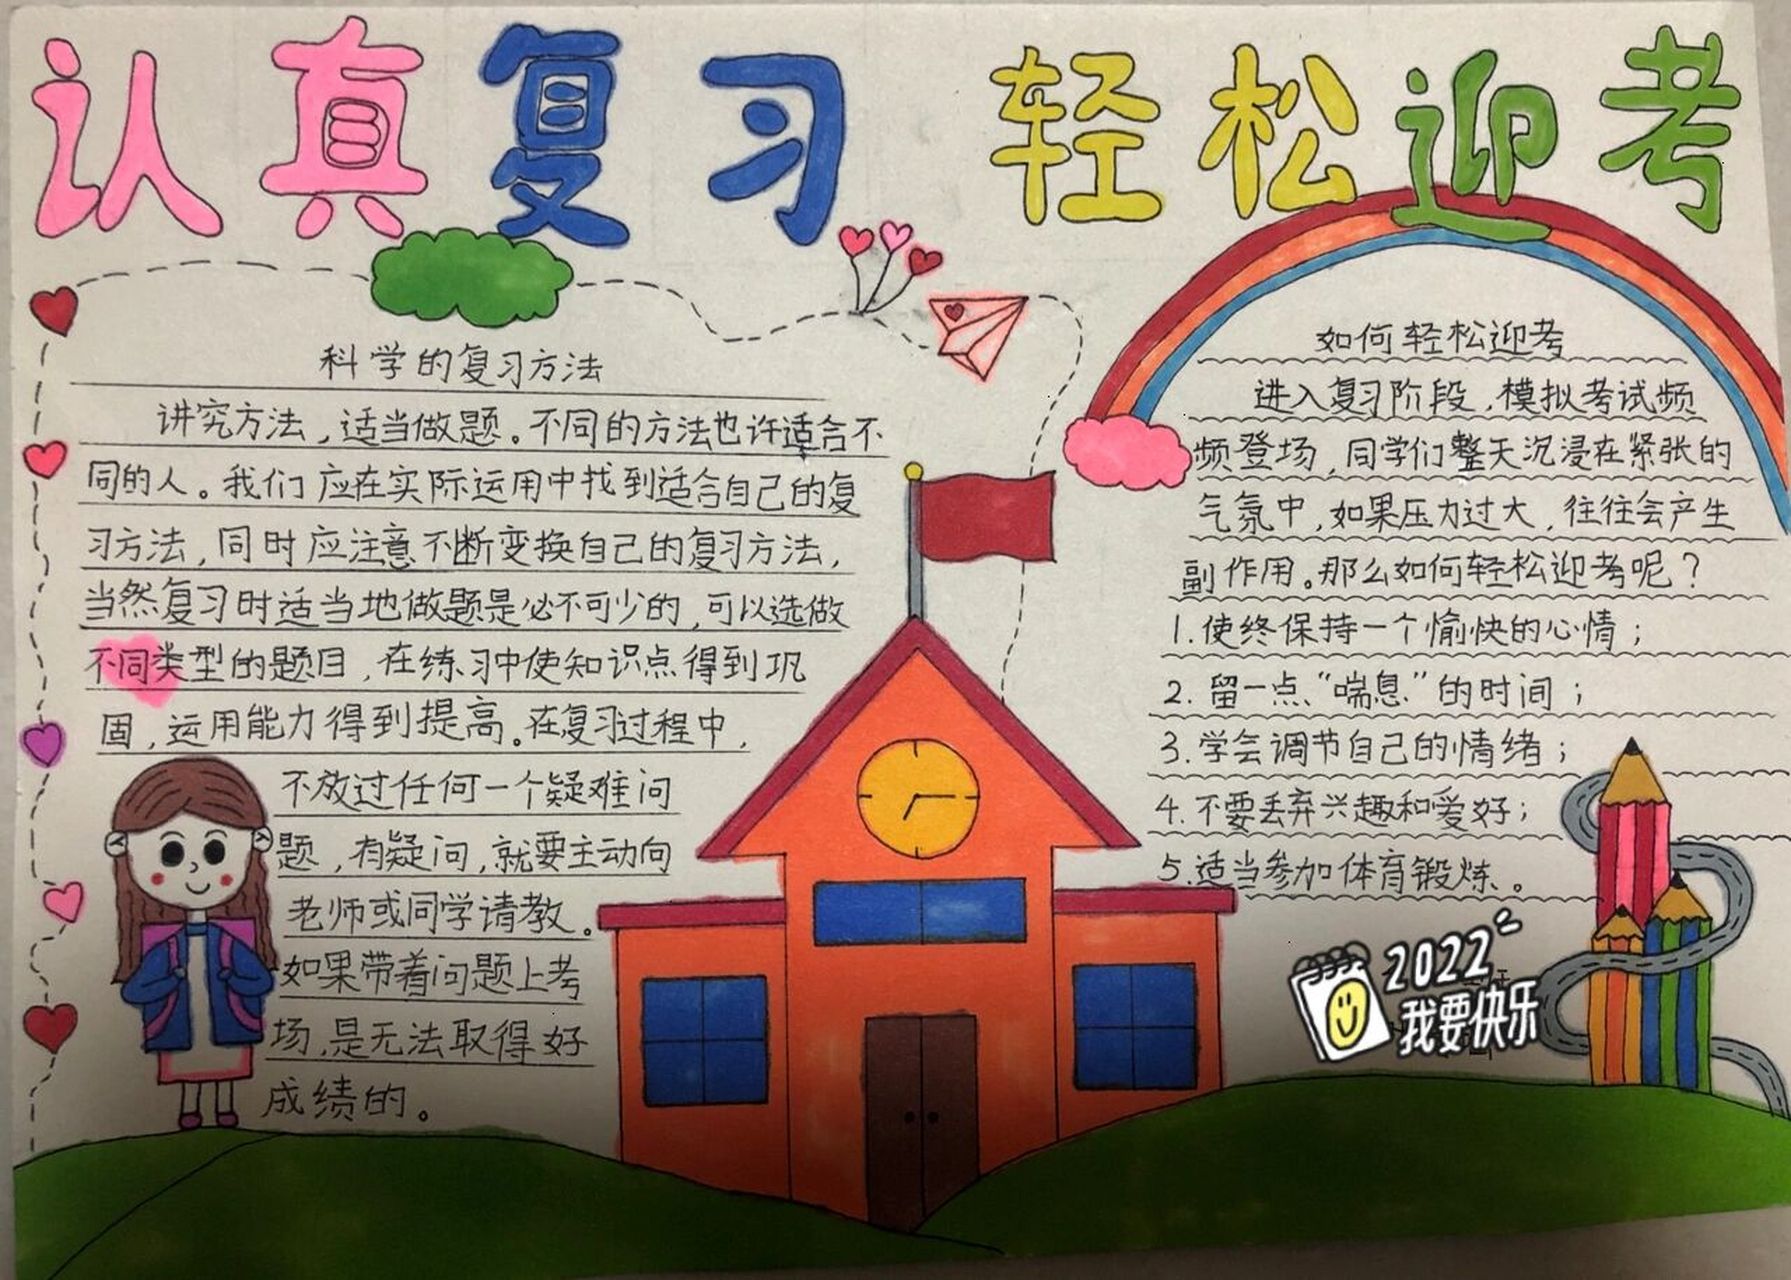 认真复习 轻松迎考
科学的复习方法
讲究方法，适当做题。不同的方法也许适合不
同的人。我们应在实际运用中找到适合自己的复
习方法，同时应注意不断变换自己的复习方法，
当然复习时适当地做题是必不可少的，可以选做
不同类型的题目，在练习中使知识点得到巩
固，运用能力得到提高。在复习过程中，
不放过任何一个疑难问
题，有疑问，就要主动向
老师或同学请教。
如果带着问题上考
场，是无法取得好
成绩的。
如何轻松迎考
进入复习阶段，模拟考试频
频登场，同学们整天沉浸在紧张的
气氛中，如果压力过大，往往会产生
副作用。那么如何轻松迎考呢？
1.使终保持一个愉快的心情；
2.留一点“喘息”的时间；
3.学会调节自己的情绪；
4.不要丢弃兴趣和爱好；
5.适当参加体育锻炼。
2022
我要快乐